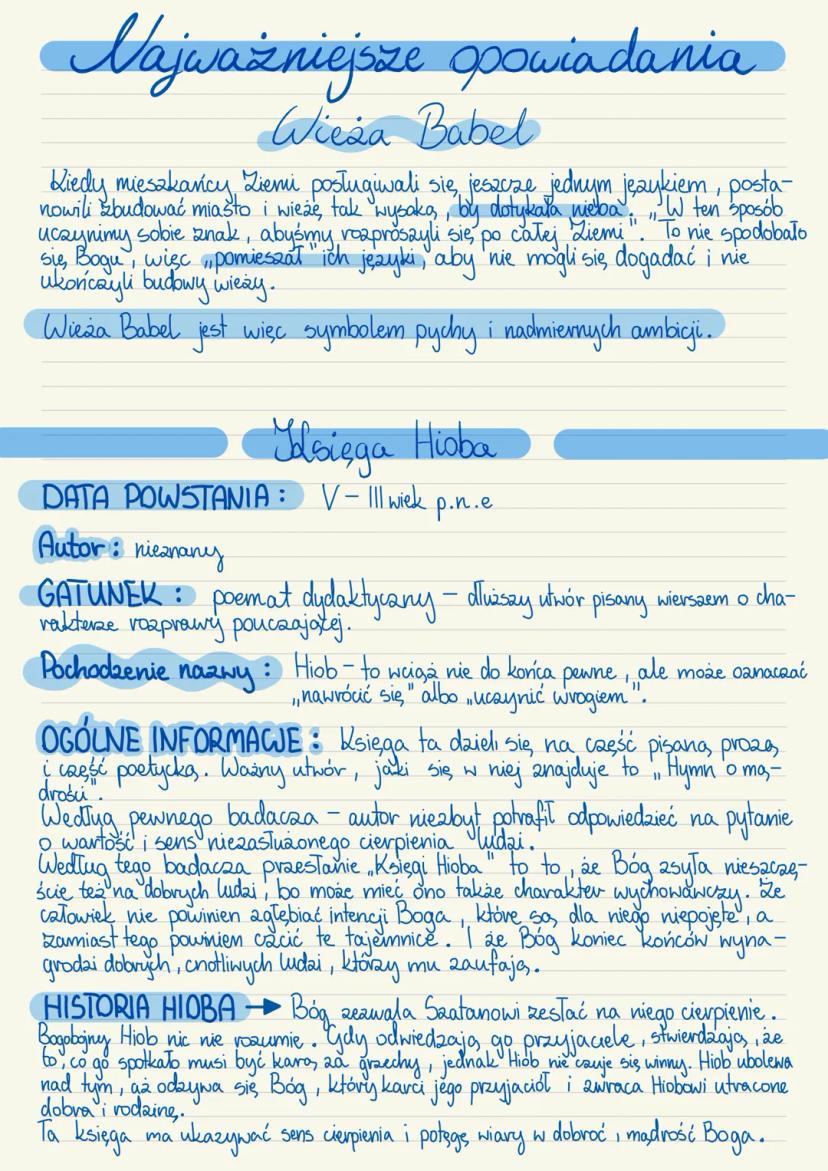 Najważniejsze opowiadania
Wieża Babel
Kiedy mieszkańcy Ziemi posługiwali się jeszcze jednym językiem, posta-
nowili zbudować miasto i wieżę tak wysoką, by dotykała nieba. „W ten sposób
uczynimy sobie znak, abyśmy rozproszyli się po całej Ziemi". To nie spodobało
się Bogu, więc „pomieszał" ich języki, aby nie mogli się dogadać i nie
ukończyli budowy wieży.
Wieża Babel jest więc symbolem pychy i nadmiernych ambicji.
Księga Hioba
DATA POWSTANIA: V – III wiek p.n.e
Autor: nieznany
GATUNEK: poemat dydaktyczny – dłuższy utwór pisany wierszem o cha-
rakterze rozprawy pouczającej.
Pochodzenie nazwy: Hiob – to wciąż nie do końca pewne, ale może oznaczać
„nawrócić się" albo „uczynić wrogiem".
OGÓLNE INFORMACJE: Księga ta dzieli się na część pisaną prozą
i część poetycką. Ważny utwór, jaki się w niej znajduje to „Hymn o mą-
drości".
Według pewnego badacza – autor niezbyt potrafił odpowiedzieć na pytanie
o wartość i sens niezasłużonego cierpienia ludzi.
Według tego badacza przesłanie „Księgi Hioba" to to, że Bóg zsyła nieszczę-
ście też na dobrych ludzi, bo może mieć ono także charakter wychowawczy. Że
człowiek nie powinien zgłębiać intencji Boga, które są dla niego niepojęte, a
zamiast tego powinien czcić te tajemnice. I że Bóg koniec końców wyna-
grodzi dobrych, cnotliwych ludzi, którzy mu zaufają.
HISTORIA HIOBA → Bóg zezwala Szatanowi zesłać na niego cierpienie.
Bogobojny Hiob nic nie rozumie. Gdy odwiedzają go przyjaciele, stwierdzają, że
to, co go spotkało musi być karą za grzechy, jednak Hiob nie czuje się winny. Hiob ubolewa
nad tym, aż odzywa się Bóg, który karci jego przyjaciół i zwraca Hiobowi utracone
dobra i rodzinę.
Ta księga ma ukazywać sens cierpienia i potęgę wiary w dobroć i mądrość Boga.